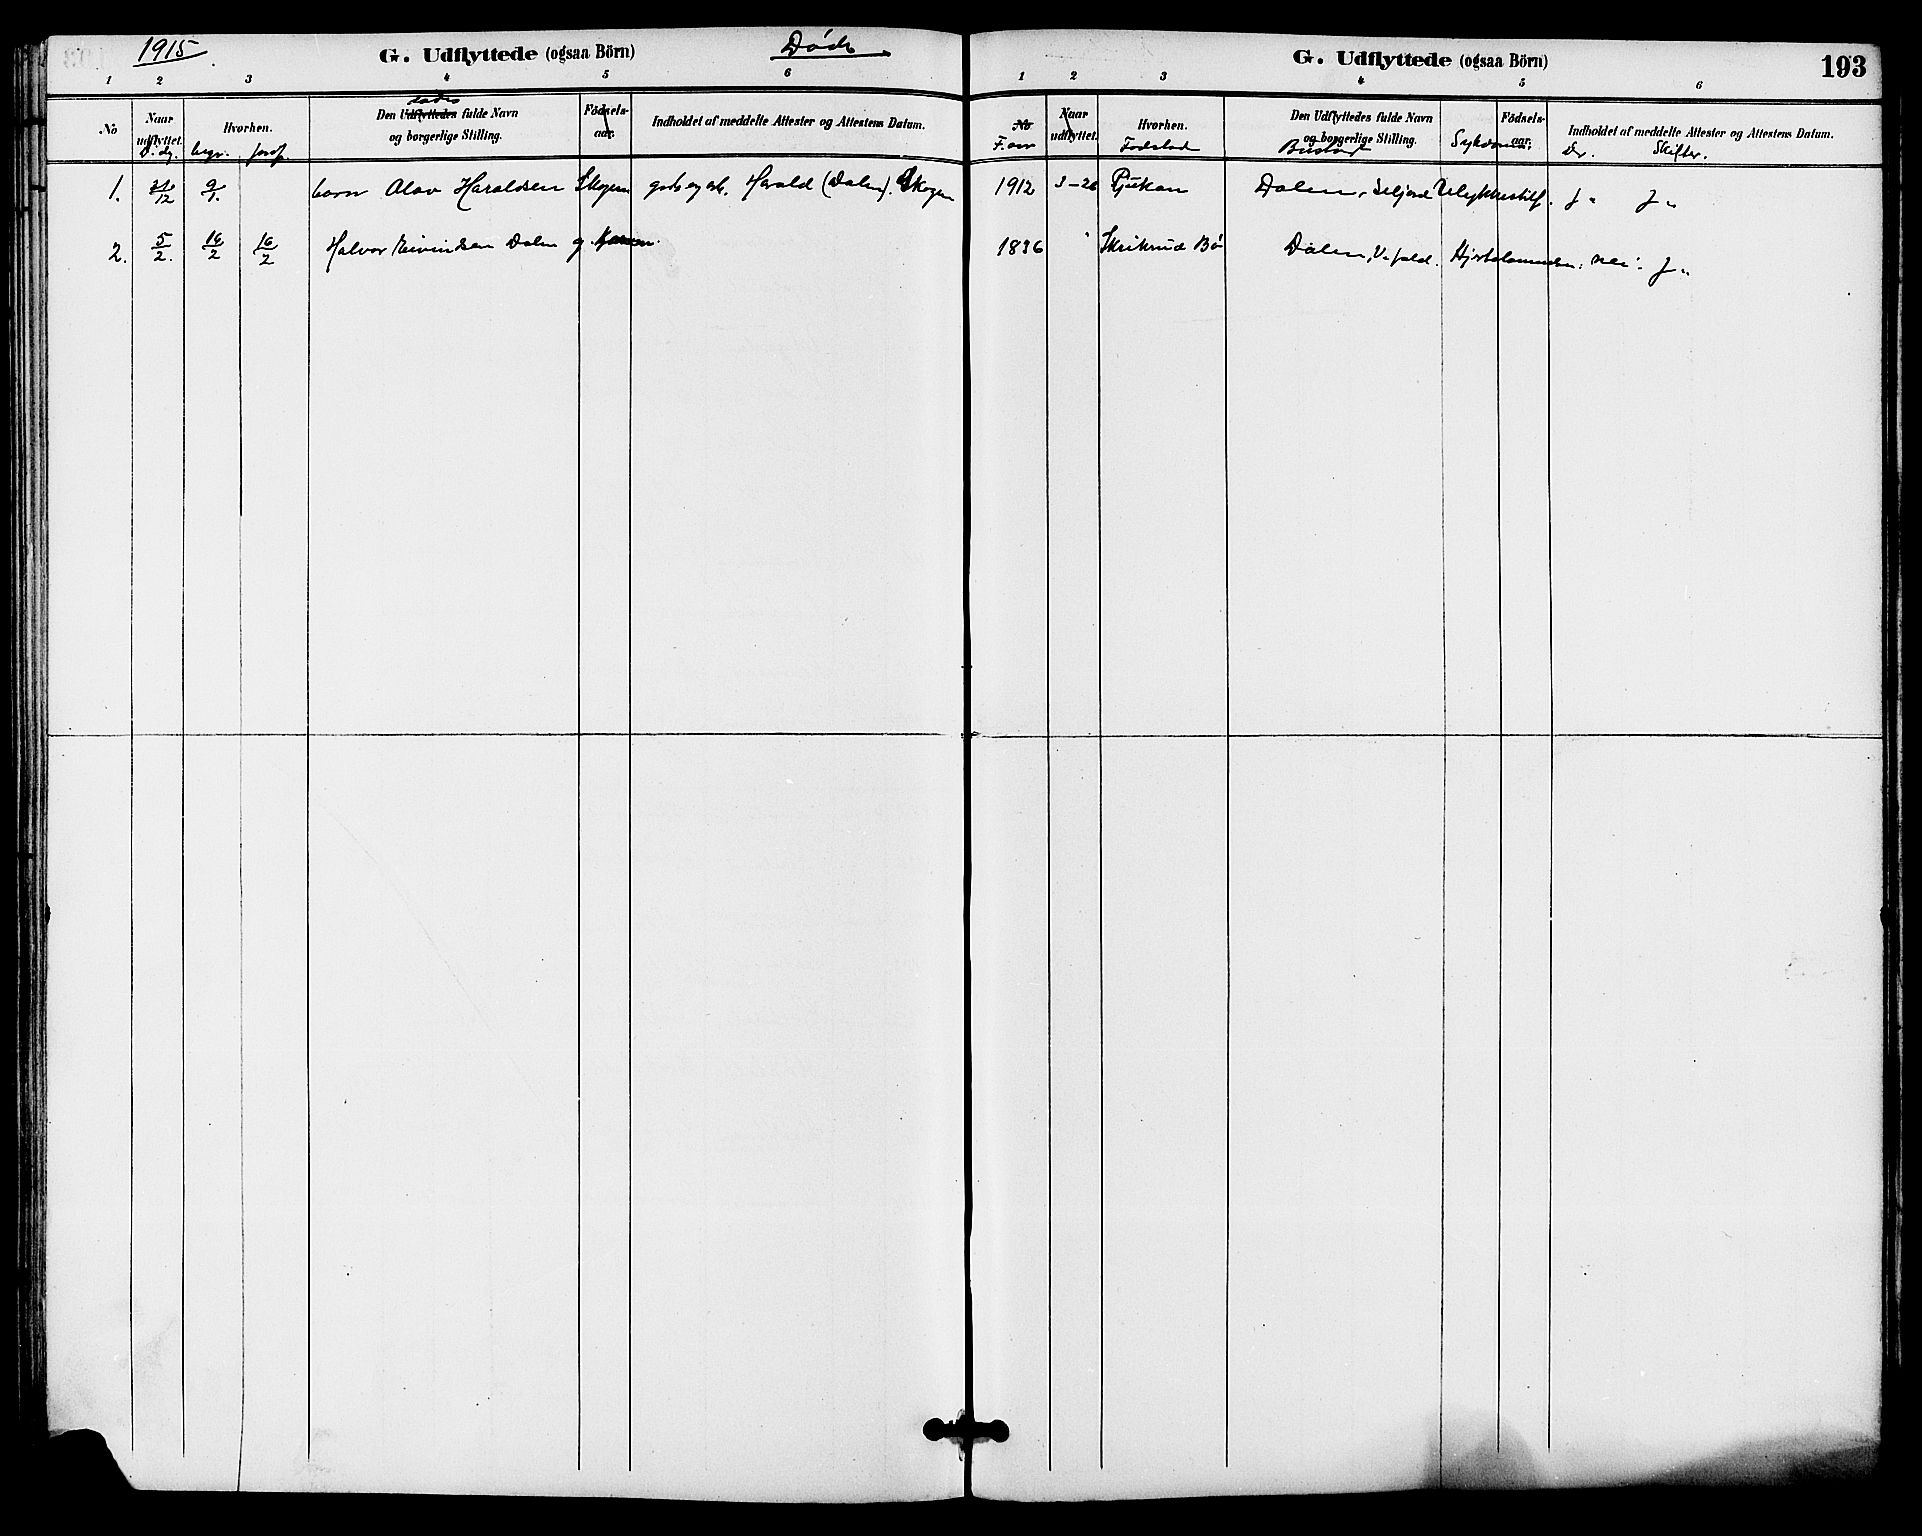 1915
G. Udflyttede (ogsaa Börn)
Døde
1 2 3 4 5 6
No
Naar udflyttet.
D. dg.
Hvorhen.
begr. jordf.
Den Udflyttedes fulde Navn og borgerlige Stilling.
dødes
Fødsels-aar.
Indholdet af meddelte Attester og Attestens Datum.
1. 31/12 9/1. barn Olav Haraldsen Skogen Harald (Dalen). Skogen
2. 5/2. 16/2 16/2 Halvor Eivindsen Dalen
G. Udflyttede (ogsaa Börn)
193
1 2 3 4 5 6
No
F. aar
Naar udflyttet.
Hvorhen.
Fødestad
Den Udflyttedes fulde Navn og borgerlige Stilling.
Bustad
Fødsels-aar.
Sykdom
Indholdet af meddelte Attester og Attestens Datum.
Dr. Skifter.
1912 3-26 Rjukan Dalen, Seljord Ulykkestilf. J " J "
1836 Skrikrud Bø Dalen, V. fold. nei. J "